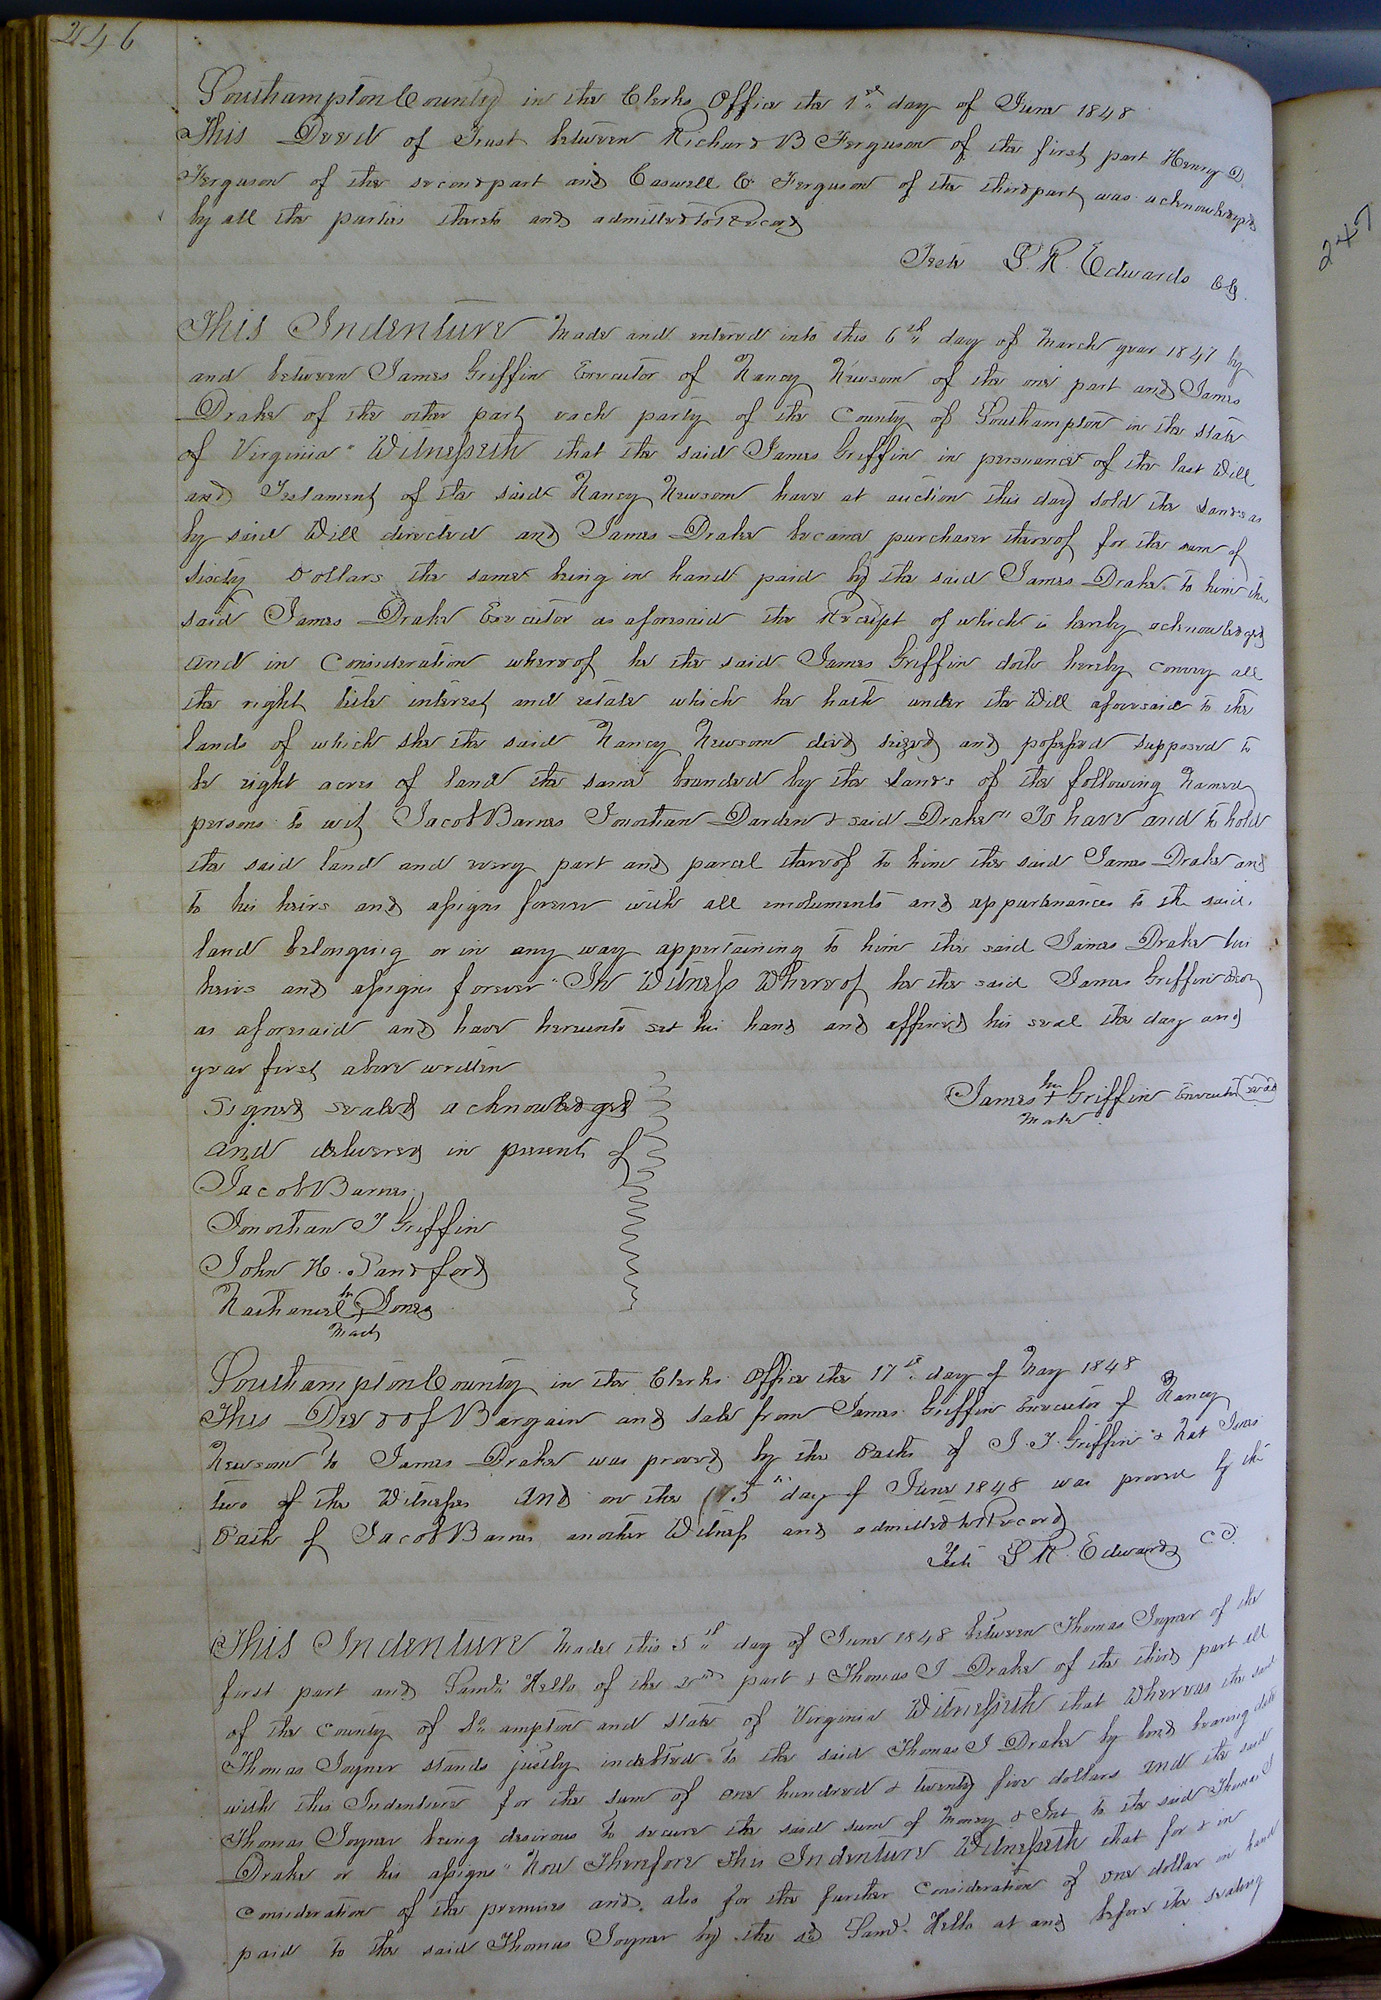 246
Southampton County in the Clerks Office the 1st day of June 1848
This Deed of Trust between Richard B Ferguson of the first part Henry D.
Ferguson of the second part and Caswell C Ferguson of the third part was acknowledged
by all the parties thereto and admitted to Record
Teste L. R. Edwards Clk.
This Indenture made and entered into this 6th day of March year 1847 by
and between James Griffin Executor of Nancy Newsom of the one part and James
Drake of the other part each party of the County of Southampton in the state
of Virginia" Witnesseth that the said James Griffin in persuance of the last Will
and Testament of the said Nancy Newsom have at auction this day sold the lands as
by said Will directed and James Drake became purchaser thereof for the sum of
Sixty Dollars the same being in hand paid by the said James Drake to him the
said James Drake Executor as aforesaid the Receipt of which is hereby acknowledged
and in consideration whereof he the said James Griffin doth hereby convey all
the right title interest and estate which he hath under the Will aforesaid to the
lands of which she the said Nancy Newsom died seized and possessed supposed to
be eight acres of land the same bounded by the lands of the following Named
persons to wit Jacob Barnes Jonathan Darden & said Drake" To have and to hold
the said land and every part and parcel thereof to him the said James Drake and
to his heirs and assigns forever with all emoluments and appurtenances to the said
land belonging or in any way appertaining to him the said James Drake his
heirs and assigns forever" In Witness Whereof he the said James Griffin Exor
as aforesaid and have hereunto set his hand and affixed his seal the day and
year first above written
James his + mark Griffin Executor seal
Signed sealed acknowledged
and delivered in presents of
Jacob Barnes
Jonathan T Griffin
John H. Sandford
Nathaniel his + mark Jones
Southampton County in the Clerks Office the 17th day of May 1848
This Deed of Bargain and sale from James Griffin Executor of Nancy
Newsom to James Drake was proved by the Oaths of J. T. Griffin & Nat Jones
two of the Witnesses and on the 15th day of June 1848 was proved by the
Oath of Jacob Barnes another Witness and admitted to Record
Teste L R. Edwards C C.
This Indenture made this 5th day of June 1848 between Thomas Joyner of the
first part and Saml. Kello of the 2nd part & Thomas J Drake of the third part all
of the County of So.ampton and State of Virginia Witnesseth that Whereas the said
Thomas Joyner stands justly indebted to the said Thomas J Drake by bond bearing date
with this Indenture for the sum of one hundred & twenty five dollars and the said
Thomas Joyner being desirous to secure the said sum of money & Int to the said Thomas J
Drake or his assigns" Now Therefore this Indenture Witnesseth that for & in
consideration of the premises and also for the further consideration of one dollar in hand
paid to the said Thomas Joyner by the sd Saml. Kello at and before the sealing
247